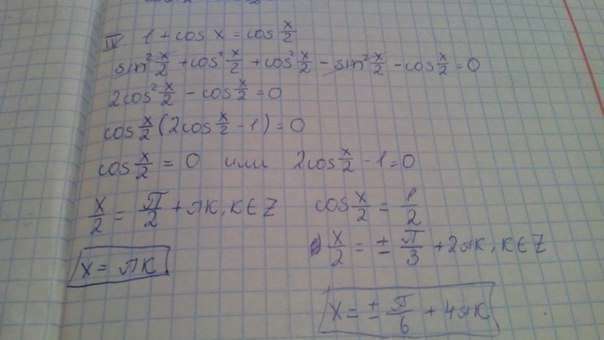 IV 1 + cos x = cos x/2
sin² x/2 + cos² x/2 + cos² x/2 - sin² x/2 - cos x/2 = 0
2cos² x/2 - cos x/2 = 0
cos x/2 (2cos x/2 - 1) = 0
cos x/2 = 0 или 2cos x/2 - 1 = 0
x/2 = π/2 + πk, k∈Z cos x/2 = 1/2
x = πk x/2 = ± π/3 + 2πk, k∈Z
x = ± π/6 + 4πk